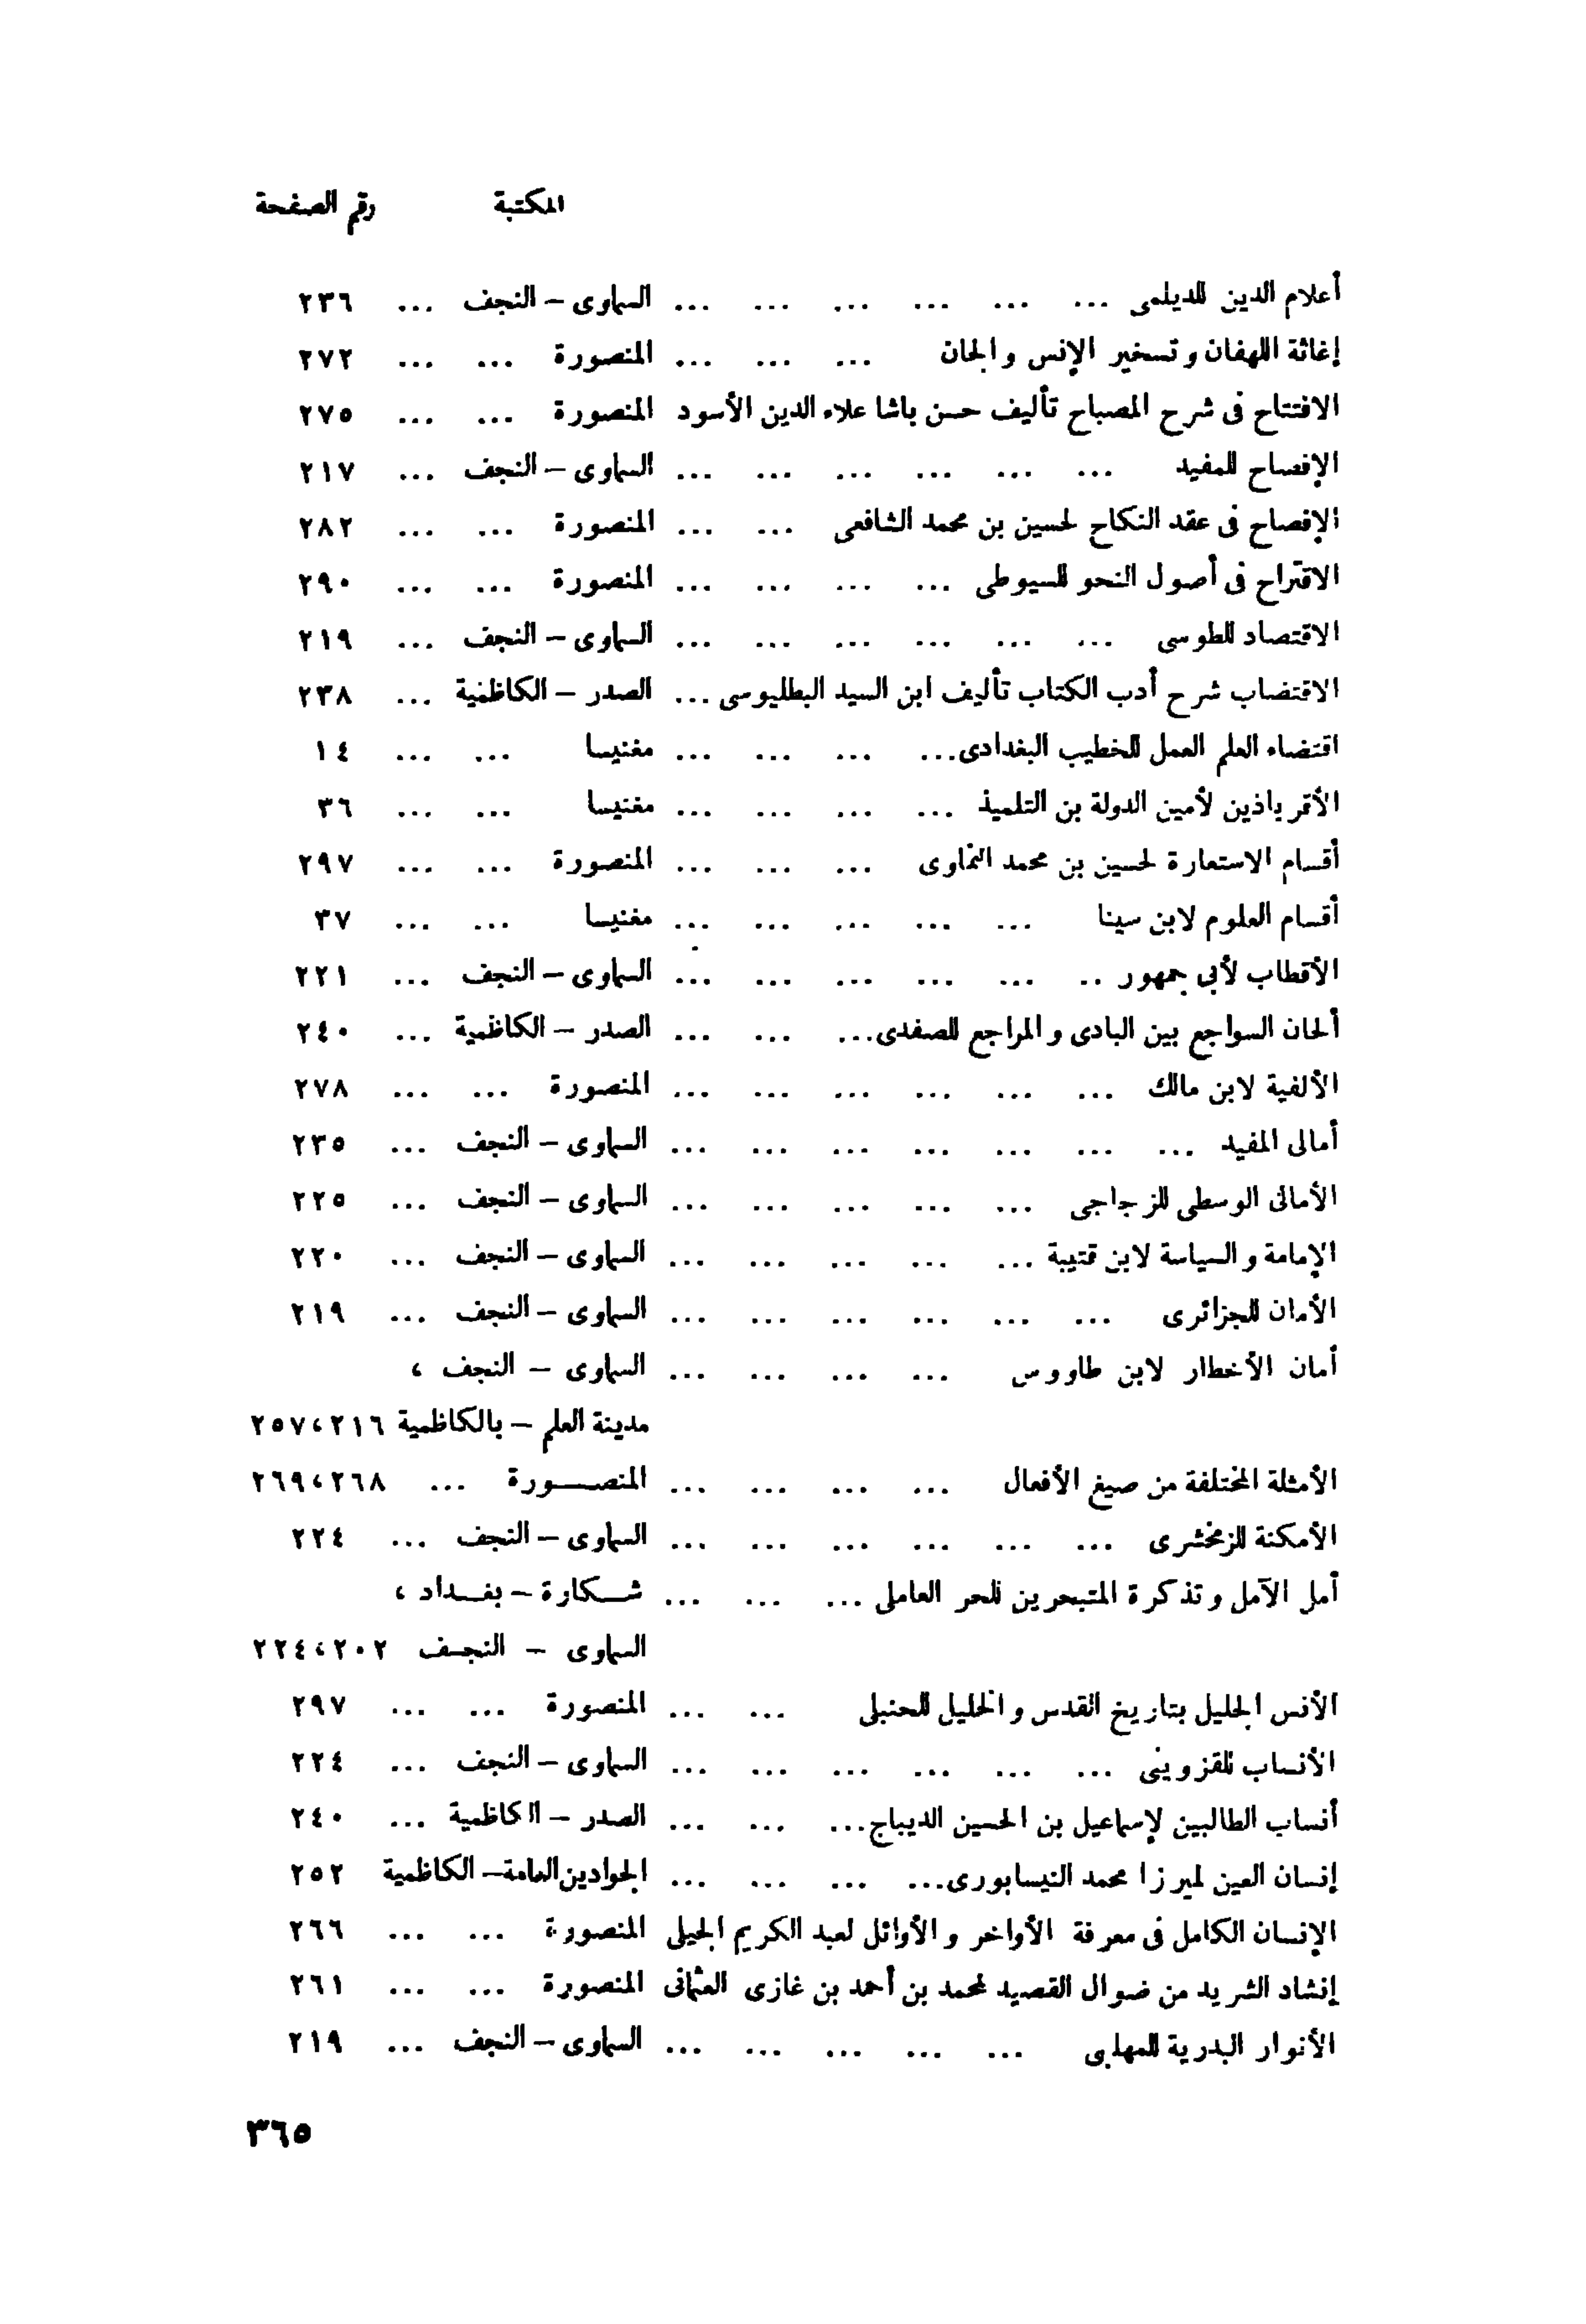 المكتبة رقم الصفحة
أعلام الدين للديلمى ... ... ... ... ... ... السماوى – النجف ... ٢٣٦
إغاثة اللهفان وتسخير الإنس والجان ... ... ... المنصورة ... ... ٢٧٢
الافتتاح فى شرح المصباح تأليف حسن باشا علاء الدين الأسود المنصورة ... ... ٢٧٥
الإفصاح للمفيد ... ... ... ... ... ... السماوى – النجف ... ٢١٧
الإفصاح فى عقد النكاح لحسين بن محمد الشافعى ... ... المنصورة ... ... ٢٨٢
الاقتراح فى أصول النحو للسيوطى ... ... ... ... المنصورة ... ... ٢٩٠
الاقتصاد للطوسى ... ... ... ... ... ... السماوى – النجف ... ٢١٩
الاقتضاب شرح أدب الكتاب تأليف ابن السيد البطليوسى ... الصدر – الكاظمية ... ٢٣٨
اقتضاء العلم العمل للخطيب البغدادى ... ... ... ... مغنيسا ... ... ١٤
الأقرباذين لأمين الدولة بن التلميذ ... ... ... ... مغنيسا ... ... ٣٦
أقسام الاستعارة لحسين بن محمد النماوى ... ... ... المنصورة ... ... ٢٩٧
أقسام العلوم لابن سينا ... ... ... ... ... مغنيسا ... ... ٣٧
الأقطاب لأبى جمهور .. ... ... ... ... ... السماوى – النجف ... ٢٢١
ألحان السواجع بين البادى والمراجع للصفدى ... ... ... الصدر – الكاظمية ... ٢٤٠
الألفية لابن مالك ... ... ... ... ... ... المنصورة ... ... ٢٧٨
أمالى المفيد ... ... ... ... ... ... ... السماوى – النجف ... ٢٣٥
الأمالى الوسطى للزجاجى ... ... ... ... ... السماوى – النجف ... ٢٢٥
الإمامة والسياسة لابن قتيبة ... ... ... ... ... السماوى – النجف ... ٢٢٠
الأمان للجزائرى ... ... ... ... ... ... السماوى – النجف ... ٢١٩
أمان الأخطار لابن طاووس ... ... ... ... السماوى – النجف ،
مدينة العلم – بالكاظمية ٢١٦ ، ٢٥٧
الأمثلة المختلفة من صيغ الأفعال ... ... ... ... المنصـــورة ... ٢٦٨ ، ٢٦٩
الأمكنة للزمخشرى ... ... ... ... ... ... السماوى – النجف ... ٢٢٤
أمل الآمل وتذكرة المتبحرين للحر العاملى ... ... ... شـكارة – بغـداد ،
السماوى – النجف ٢٠٢ ، ٢٢٤
الأنس الجليل بتاريخ القدس والخليل للحنبلى ... ... المنصورة ... ... ٢٩٧
الأنساب للقزوينى ... ... ... ... ... ... السماوى – النجف ... ٢٢٤
أنساب الطالبين لإسماعيل بن الحسين الديباج ... ... ... الصدر – الكاظمية ... ٢٤٠
إنسان العين لميرزا محمد النيسابورى ... ... ... ... الجوادين العامة – الكاظمية ٢٥٢
الإنسان الكامل فى معرفة الأواخر والأوائل لعبد الكريم الجيلى المنصورة ... ... ٢٦٦
إنشاد الشريد من ضوال القصيد لمحمد بن أحمد بن غازى العثمانى المنصورة ... ... ٢٦١
الأنوار البدرية للمهلبى ... ... ... ... ... السماوى – النجف ... ٢١٩
٣٦٥